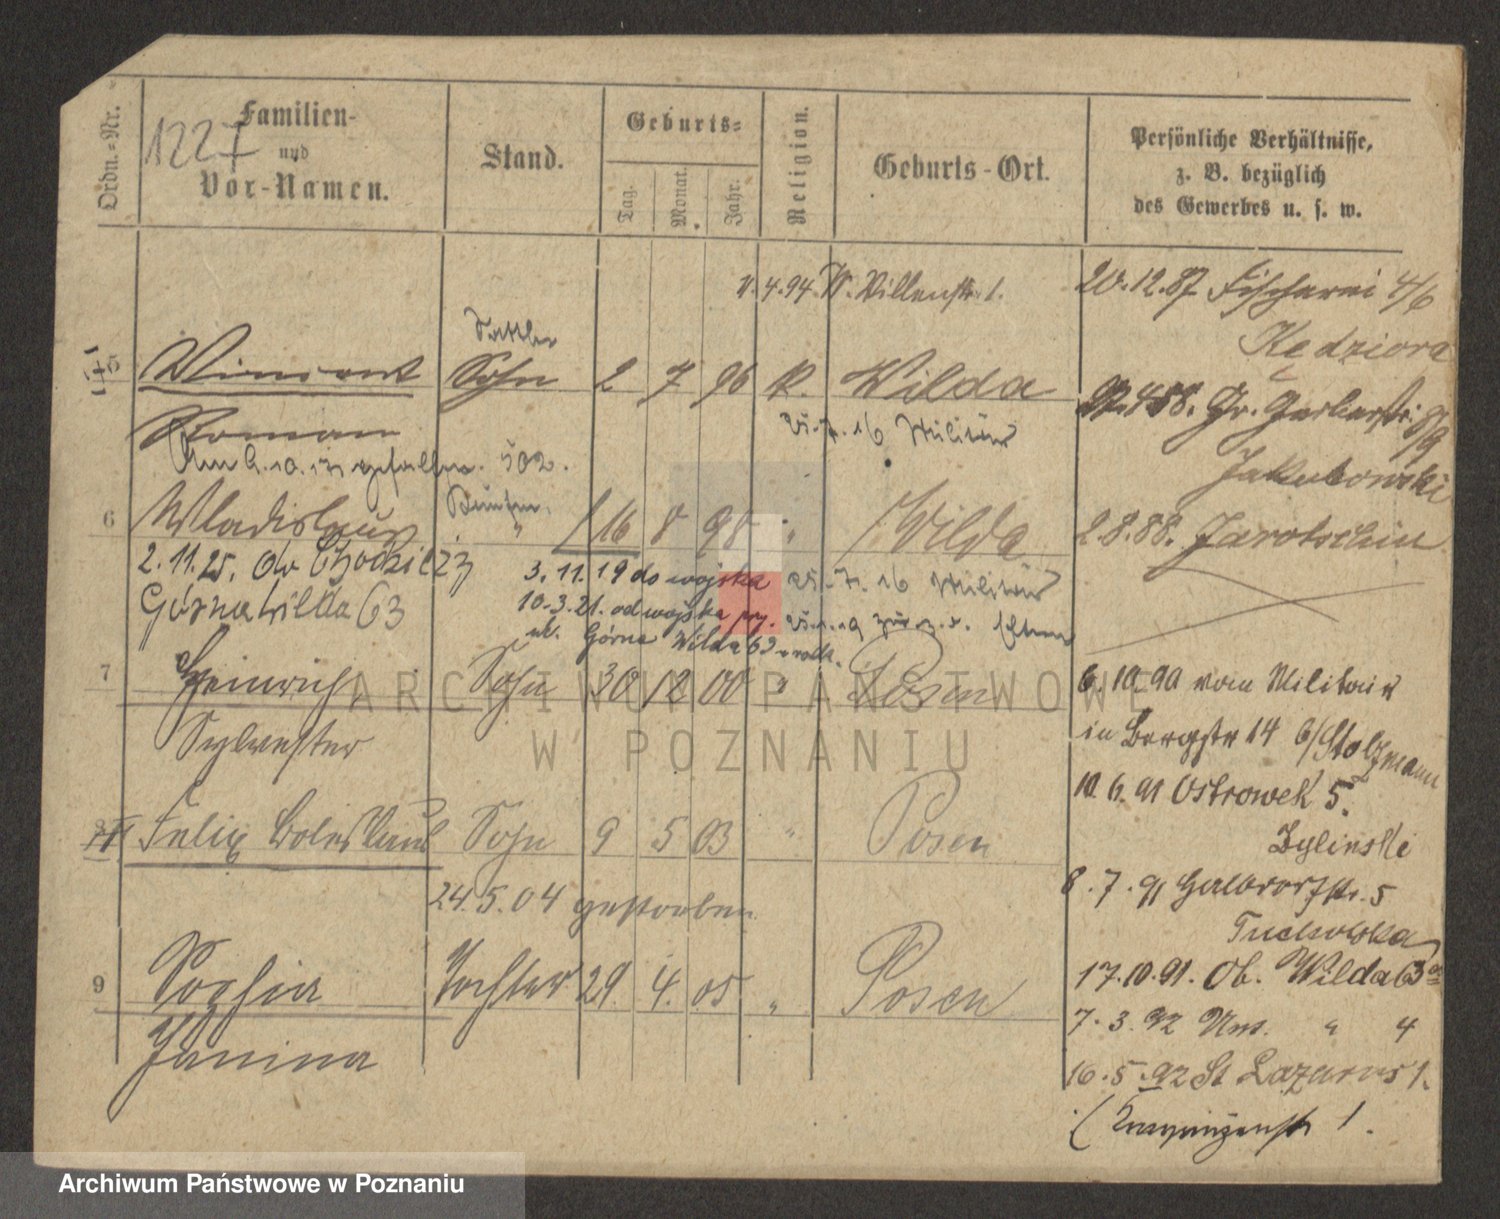 Ordn.=Nr.
Familien-
und
Vor-Namen.
1227
Stand.
Geburts=
Tag.
Monat.
Jahr.
Religion.
Geburts-Ort.
Persönliche Verhältnisse,
z. B. bezüglich
des Gewerbes u. s. w.
4.94 W. Villenstr. 1.
20.12.87 Fischerei 4/6
Kędziora
5 Vincent Sattler Sohn 2 7 96 K. Wilda
Roman
25.7.16 Militär
gefallen. 502.
Gr. Gerberstr. 8/9
Jakubowski
6 Wladislaus 16 8 98 " Wilda
2.8.88. Jarotschin
2.11.25. Chodzież
Górna Wilda 63
3.11.19 do wojska
25.7.16 Militär
10.3.21. od wojska
ul. Górna Wilda 63
7 Heinrich Sohn 30 12 00 " Posen
Sylvester
6.10.90 vom Militair
in Bergstr 14 b/Stolzmann
10.6.91 Ostrowek 5.
Zylinski
8 Felix Boleslaus Sohn 9 5 03 " Posen
24.5.04 gestorben
8.7.91 Halbdorfstr. 5
Tucholska
9 Sophia Tochter 29. 4. 05 " Posen
Janina
17.10.91. Ob. Wilda 63
7.3.92 Unt. " 4
16.5.92 St Lazarus 1.
1.
ARCHIWUM PAŃSTWOWE
W POZNANIU
Archiwum Państwowe w Poznaniu